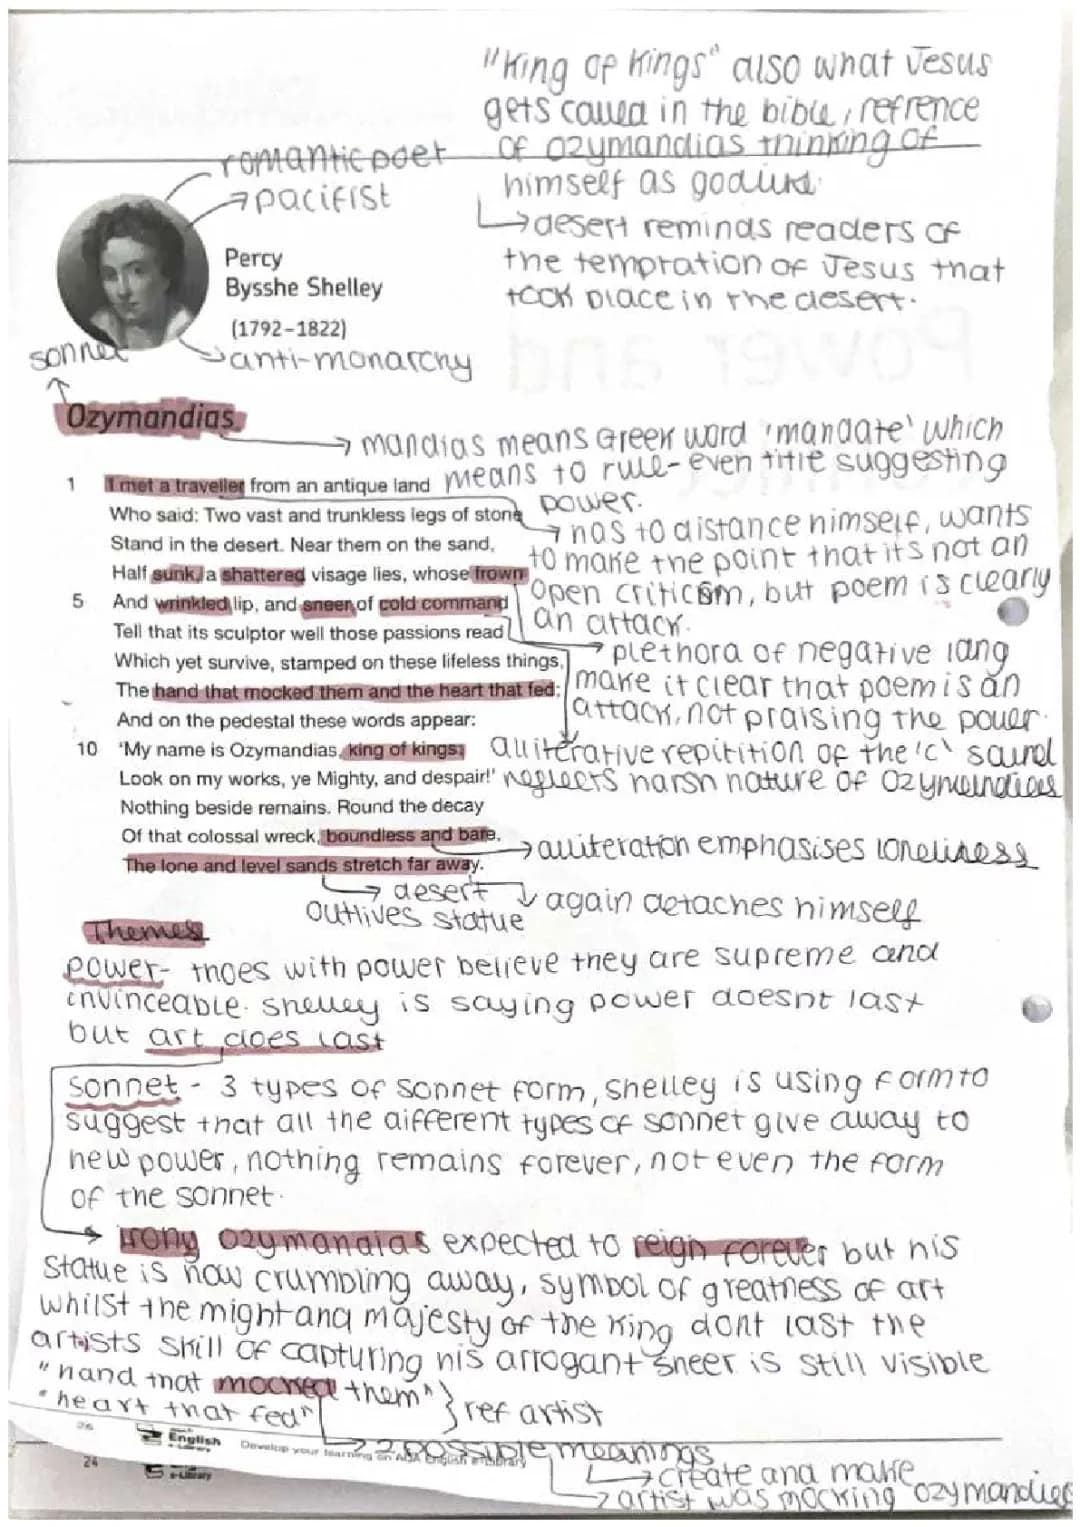 "King of Kings" also what Jesus
gets called in the bible, refrence
of ozymandias thinking of
himself as godlike.
→desert reminds readers of
the temptation of Jesus that
took place in the desert.
romantic poet
→pacifist
Percy
Bysshe Shelley
(1792–1822)
→anti-monarchy
sonnet
Ozymandias
→ mandias means Greek word 'mandate' which
means to rule- even title suggesting
power.
1 I met a traveller from an antique land
Who said: Two vast and trunkless legs of stone
Stand in the desert. Near them on the sand,
Half sunk, a shattered visage lies, whose frown
5 And wrinkled lip, and sneer of cold command
Tell that its sculptor well those passions read
Which yet survive, stamped on these lifeless things,
The hand that mocked them and the heart that fed;
And on the pedestal these words appear:
10 'My name is Ozymandias, king of kings;
Look on my works, ye Mighty, and despair!'
Nothing beside remains. Round the decay
Of that colossal wreck, boundless and bare,
The lone and level sands stretch far away.
→ has to distance himself, wants
to make the point that its not an
open criticism, but poem is clearly
an attack.
→ plethora of negative lang
make it clear that poem is an
attack, not praising the power.
alliterative repitition of the 'c' sound
reflects harsh nature of Ozymandias
→alliteration emphasises loneliness
→ desert
outlives statue
↓ again detaches himself
Themes
power- thoes with power believe they are supreme and
invinceable. shelley is saying power doesnt last
but art does last
Sonnet - 3 types of sonnet form, shelley is using form to
suggest that all the different types of sonnet give away to
new power, nothing remains forever, not even the form
of the sonnet.
→ irony ozymandias expected to reign forever but his
statue is now crumbling away, symbol of greatness of art
whilst the might and majesty of the king dont last the
artists skill of capturing his arrogant sneer is still visible
"hand that mocked them" } ref artist
"heart that fed"
→ 2 possible meanings
→create and make
→ artist was mocking ozymandias
26
English
e-Library
Develop your learning on AQA English e-Library
24
e-Library